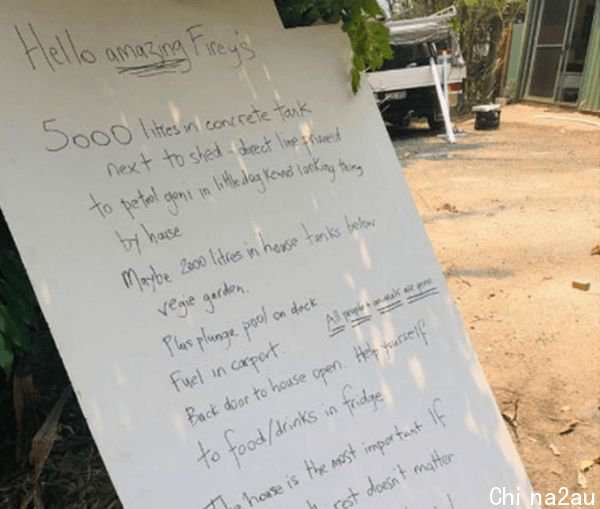 Hello amazing Firey's
5000 litres in concrete tank
next to shed - direct line primed
to petrol geni in little dog kennel looking thing
by house
Maybe 2000 litres in house tanks below
vegie garden.
Plus plunge pool on deck
All people + animals are gone
Fuel in carport.
Back door to house open. Help yourself
to food/drinks in fridge
The house is the most important If
rest doesn't matter
Chi na2au